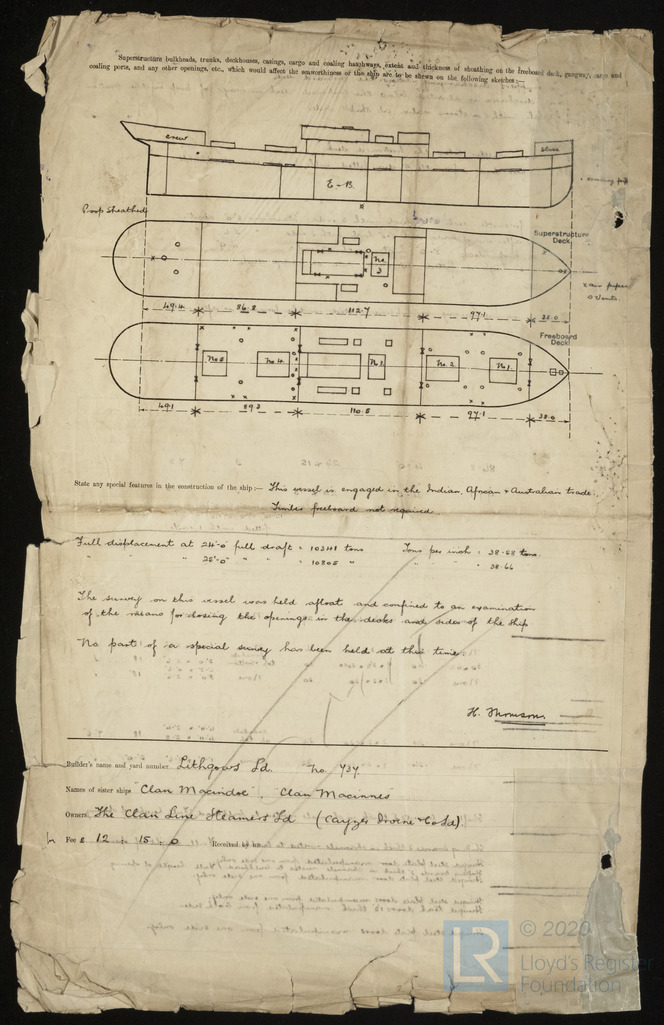 Superstructure bulkheads, trunks, deckhouses, casings, cargo and coaling hatchways, extent and thickness of sheathing on the freeboard deck, gangway, cargo and
coaling ports, and any other openings, etc., which would affect the seaworthiness of the ship are to be shewn on the following sketches:—
crew
Store
E-B.
Poop sheathed
Superstructure
Deck.
No. 3
air pipes
o Vents.
49.4. 86.2 112.7 97.1 38.0
Freeboard
Deck
No 5 No 4. No 3. No 2. No 1.
49.1 89.3 110.5 97.1 38.0
State any special features in the construction of the ship:— This vessel is engaged in the Indian, African & Australian trade.
Timber freeboard not required.
Full displacement at 24'-0" full draft = 10341 tons Tons per inch = 38.58 tons.
" " " 25'-0" " " = 10805 " " " " = 38.66
The survey on this vessel was held afloat and confined to an examination
of the means for closing the openings in the decks and sides of the ship
No part of a special survey has been held at this time.
H. Thomson.
Builder's name and yard number Lithgows Ld. No. 737.
Names of sister ships Clan Macindoe, Clan Macinnes
Owners The Clan Line Steamers Ld (Cayzer Irvine & Co Ld).
Fee £ 12 : 15 : 0 Received by me
LR
© 2020
Lloyd's Register
Foundation